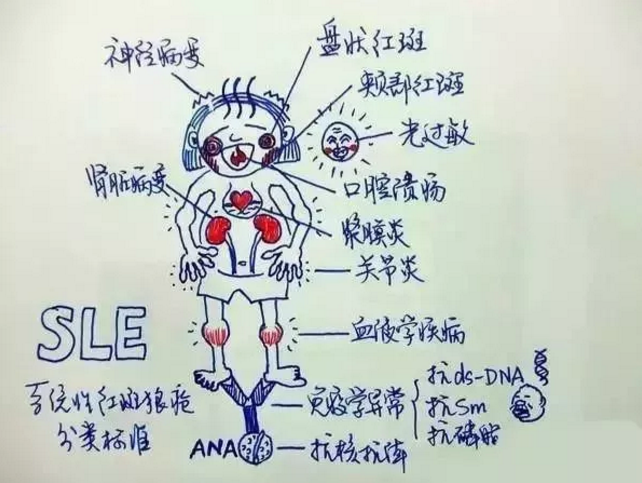 神经病变
盘状红斑
颊部红斑
光过敏
口腔溃疡
肾脏病变
浆膜炎
关节炎
SLE
血液学疾病
系统性红斑狼疮
分类标准
免疫学异常
抗ds-DNA
抗Sm
抗磷脂
ANA
抗核抗体